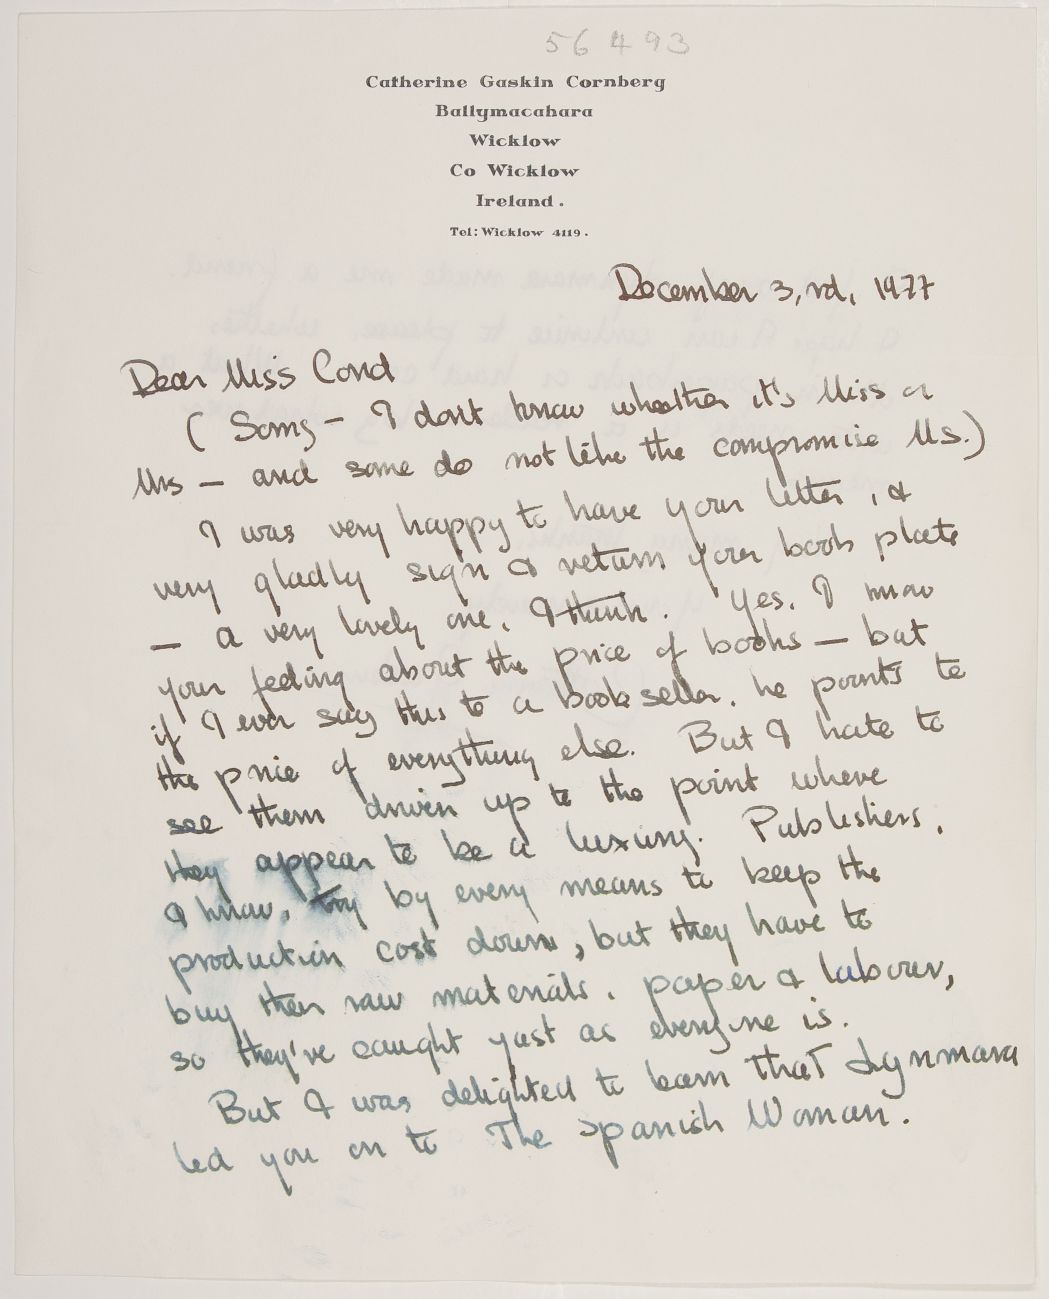 56493
Catherine Gaskin Cornberg
Ballymacahara
Wicklow
Co Wicklow
Ireland.
Tel: Wicklow 4119.
December 3, rd, 1977
Dear Miss Cond
( Sorry – I don't know whether it's Miss or
Mrs – and some do not like the compromise Ms.)
I was very happy to have your letter, &
very gladly sign & return your book plate
– a very lovely one, I think. Yes, I know
your feeling about the price of books – but
if I ever say this to a bookseller, he points to
the price of everything else. But I hate to
see them driven up to the point where
they appear to be a luxury. Publishers,
I know, try by every means to keep the
production cost down, but they have to
buy their raw materials, paper & labour,
so they've caught just as everyone is.
But I was delighted to learn that Lynmara
led you on to The Spanish Woman.